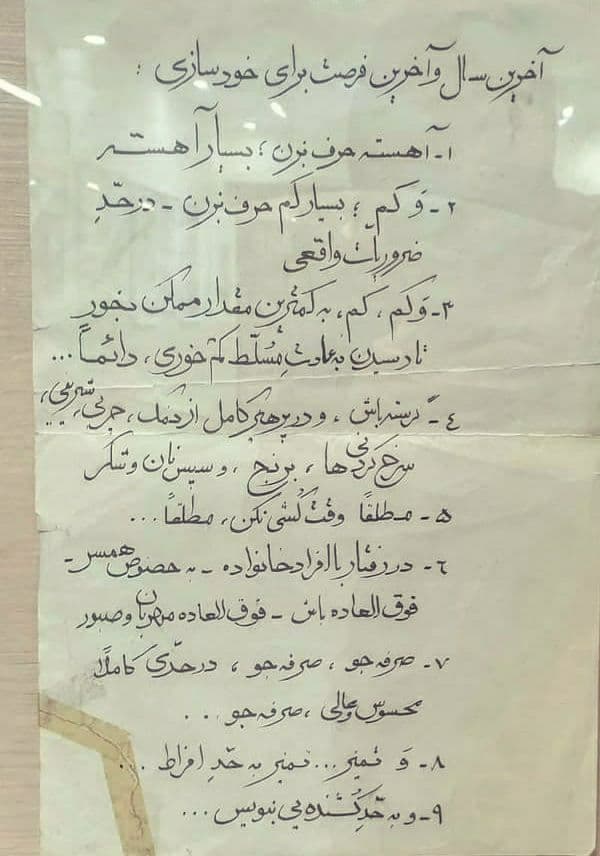 آخرین سال و آخرین فرصت برای خودسازی :
۱- آهسته حرف بزن ؛ بسیار آهسته
۲- وَ کم ؛ بسیار کم حرف بزن - در حدِّ
ضروریات واقعی
۳- وَ کم ، کم ، به کمترین مقدار ممکن بخور
تا رسیدن به عادتِ مُسلّط کم خوری ، دائماً ...
٤- گرسنه باش ، و در پرهیز کامل از نمک ، چربی ،
سرخ کردنی ها ، برنج ، و سپس نان و شکر
۵- مطلقاً وقت کُشی نکن ، مطلقاً ...
٦- در رفتار با افراد خانواده - به خصوص همسر -
فوق العاده باش - فوق العاده مهربان و صبور
۷- صرفه جو ، صرفه جو ، در حدّی کاملاً
محسوس و عالی ، صرفه جو ...
۸- وَ تمیز ... تمیز به حدِّ افراط ...
۹- و به حَدِّ کُشنده یی بنویس ...